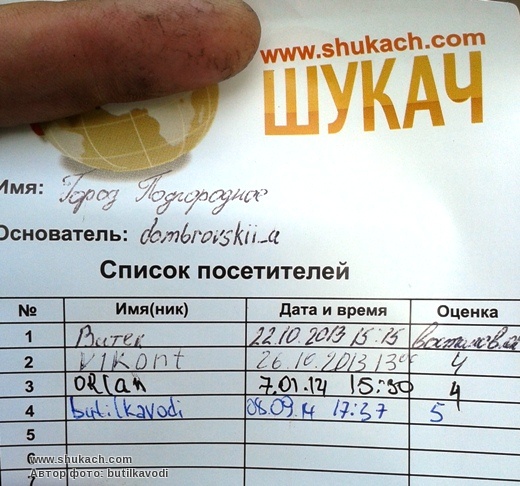 www.shukach.com
ШУКАЧ
Имя: Город Подгородное
Основатель: dombrovskii_a
Список посетителей
№ Имя(ник) Дата и время Оценка
1 Витек 22.10.2013 15:15
2 VIKONT 26.10.2013 13⁰⁰ 4
3 ORlan 7.01.14 15:30 4
4 butilkavodi 08.09.14 17:37 5
5
6
7
www.shukach.com
Автор фото: butilkavodi